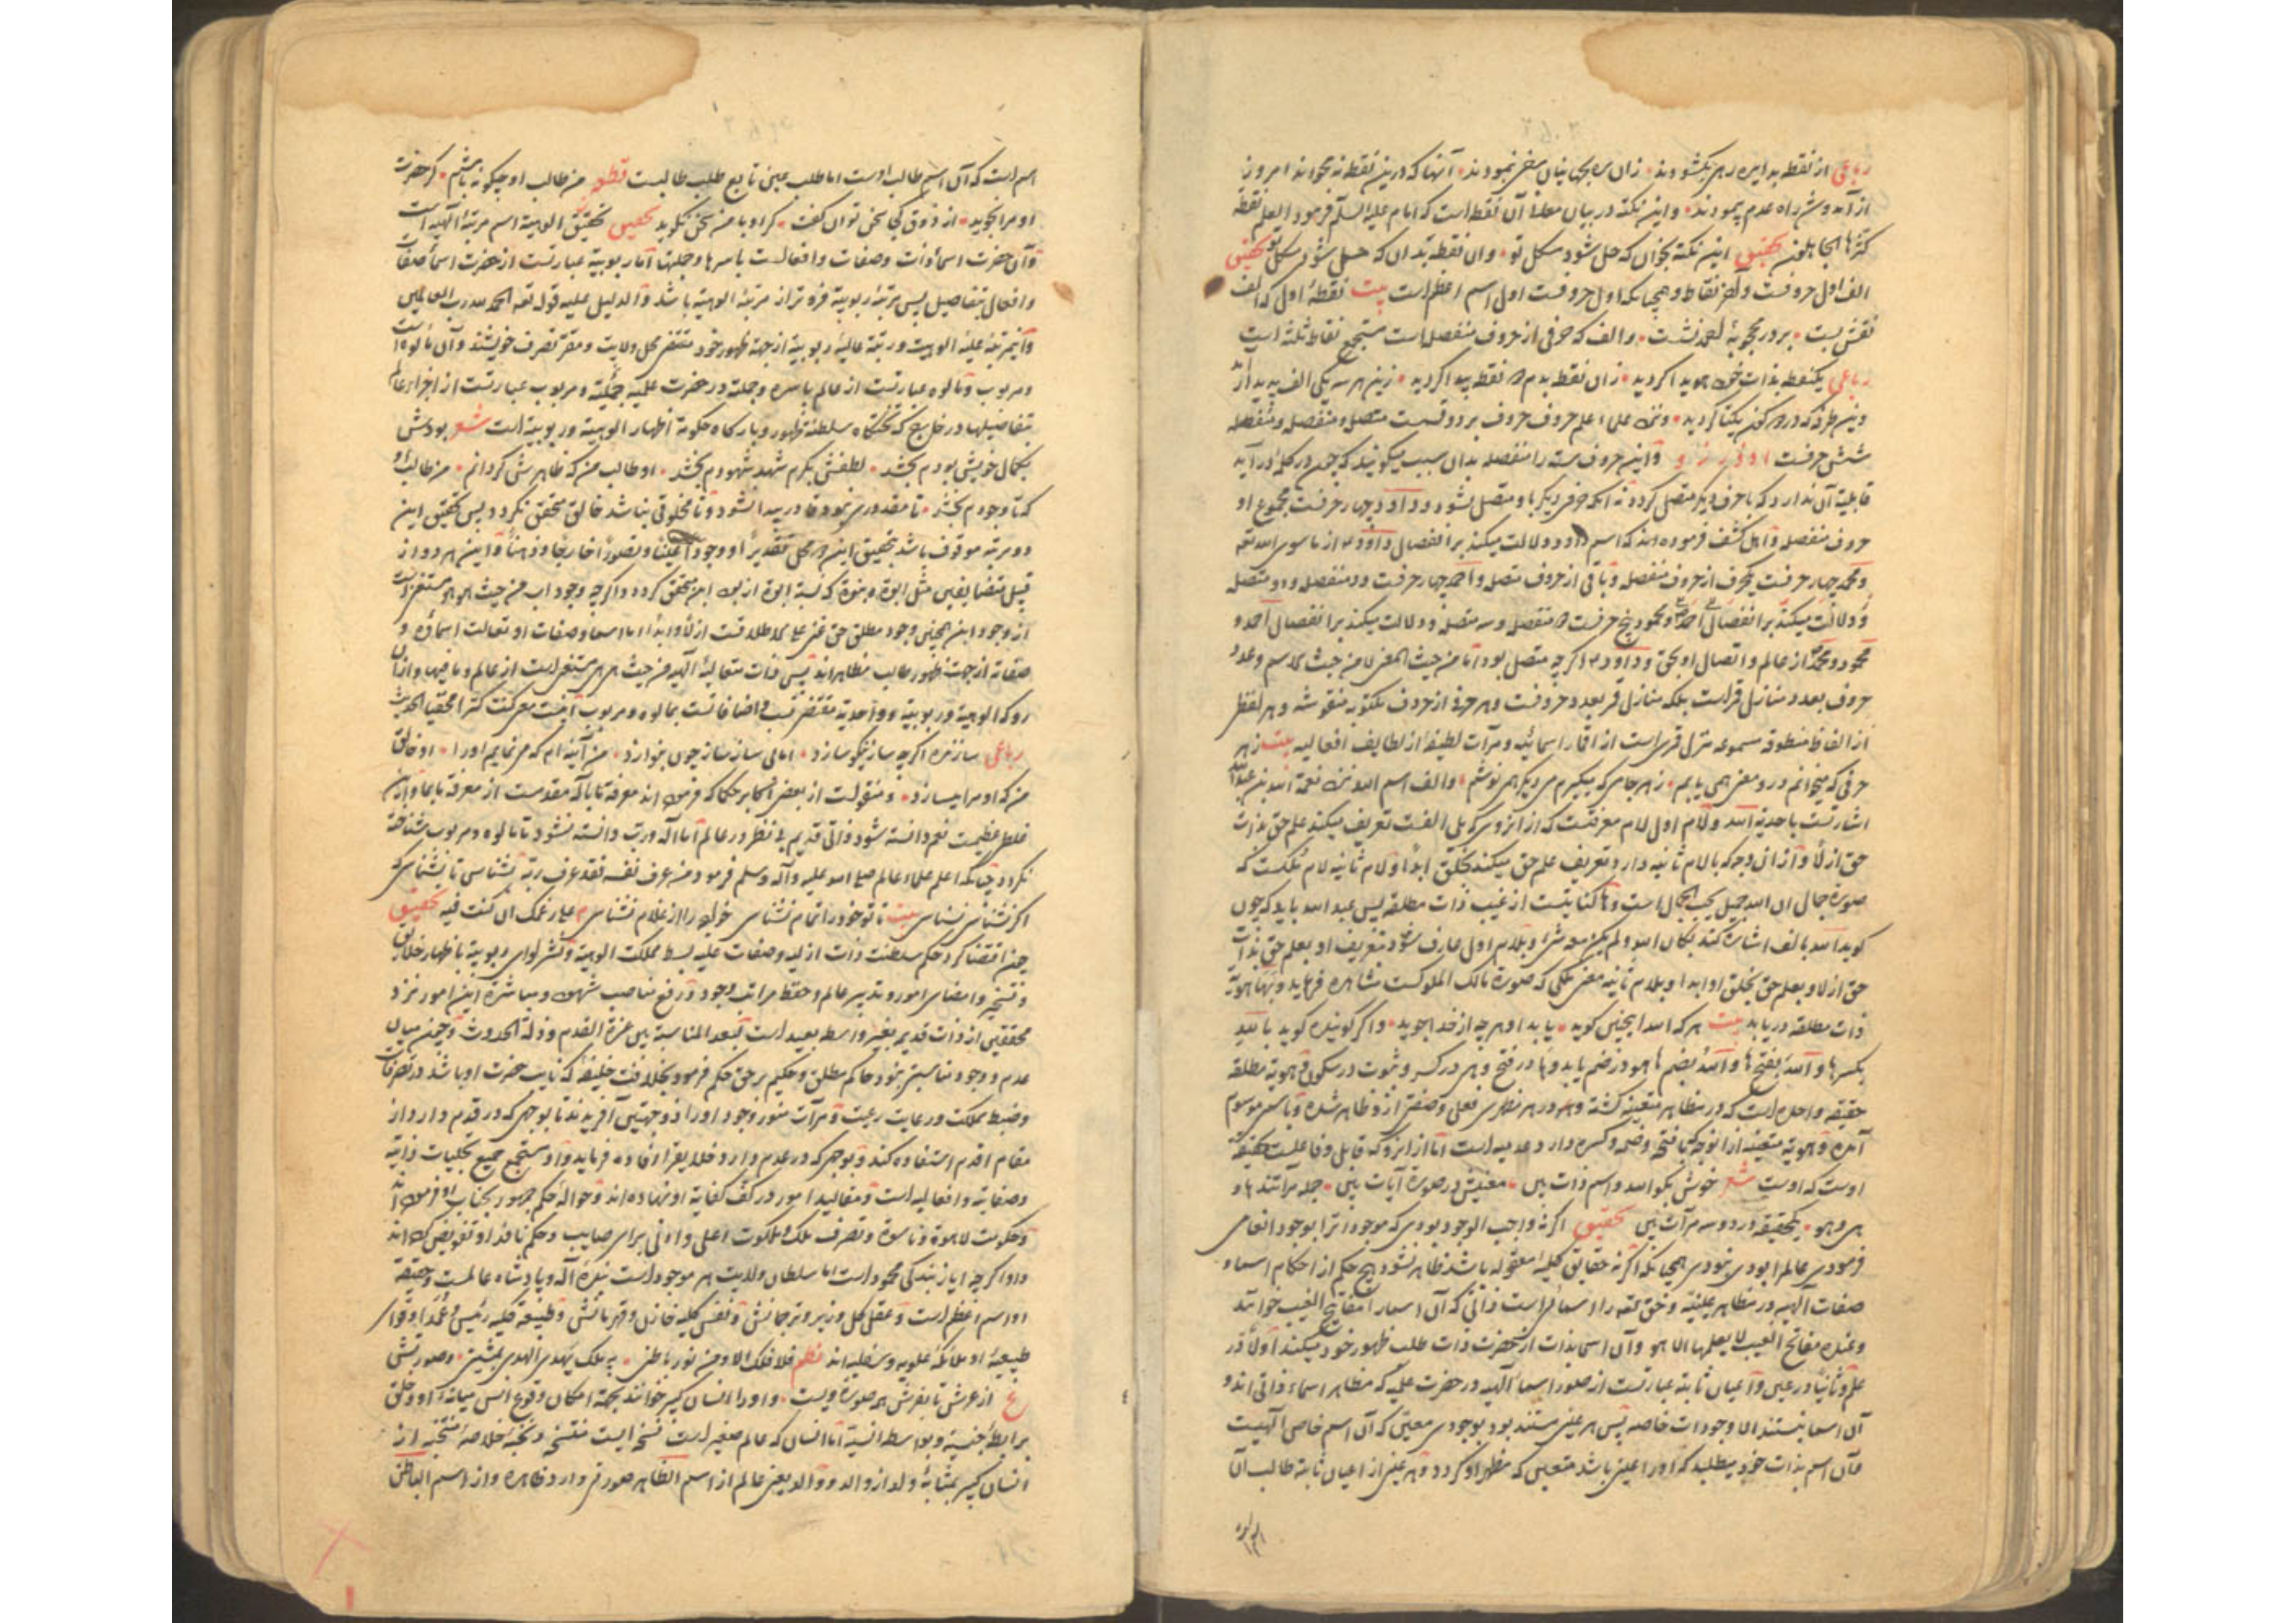 رباعی از نقطه بدایره رهی بگشودند زان ره بجهانیان سفر نمودند آنها که درین نقطه نه محوند امروز
از آمد و شد راه عدم پیمودند و این نکته در بیان معنا آن نقطه است که امام علیه السلم فرمود العلم نقطة
کثرها الجاهلون تحقیق این نکته بخوان که حل شود مشکل تو وان نقطه بدان که حل شود مشکل تو تحقیق
الف اول حروفست و آخر نقاط و همچنانکه اول حروفست اول اسم اعظم است بیت نقطهٔ اول که الف
نقش بست بر در محجوبهٔ احمد نشست و الف که حرفی از حروف منفصله است مستجمع نقاط ثلثه است
رباعی یکنقطه بذات خود هویدا گردید زان نقطه بدم دو نقطه پیدا گردید زین هر سه یکی الف پدید آمد
وین طرفه که در دو کون یکتا گردید و نزد علماء علم حروف حروف بر دو قسمت متصله و منفصله و منفصله
شش حرفست ا د ذ ر ز و و این حروف سته را منفصله بدان سبب میگویند که چون در کلمه درآید
قابلیة آن ندارد که با حرف دیگر متصل گردد نه آنکه حرفی دیگر با او متصل نشود و داود چهار حرفست مجموع او
حروف منفصله و اهل کشف فرموده اند که اسم داود دلالت میکند بر انفصال داود از ما سوی الله تعه
و محمد چهار حرفست یکحرف از حروف منفصله و باقی از حروف متصله و احمد چهار حرفست دو منفصله و دو متصله
و دلالت میکند بر انفصال احمد و محمود پنج حرفست دو منفصله و سه متصله و دلالت میکند بر انفصال احمد و
محمود و محمد از عالم و اتصال او بحق و داود اگر چه متصل بود اما من حیث المعنی لا من حیث الاسم و عدد
حروف بعدد منازل قمر است بلکه منازل قمر بعدد حروفست و هر حرفی از حروف مکتوبه منقوشه و هر لفظی
از الفاظ منطوقه مسموعه منزل قمری است از اقمار اسمائیه و مرآت لطیفهٔ از لطایف افعالیه بیت ز هر
حرفی که میخوانم درو معنی همی یابم ز هر جامی که میگیرم می دیگر همی نوشم و الف اسم الله نزد نعمة الله بن عبدالله
اشارتست باحدیة الله و لام اول لام معرفتست که از انروی که بی الفست تعریف میکند علم حق بذات
حق ازلا و از ان وجه که بالام ثانیه دارد تعریف علم حق میکند بخلق ابدا و لام ثانیه لام ملکست که
صورة جمال ان الله جمیل یحب الجمال است و ها کنایتست از غیب ذات مطلقه پس عبد الله باید که چون
گوید الله بالف اشاره کند بکان الله و لم یکن معه شیء و بلام اول عارف شود بتعریف او بعلم حق بذات
حق ازلا و بعلم حق بخلق او ابدا و بلام ثانیه معنی ملکی که صورة مالک الملوکست مشاهده فرماید و بها هویة
ذات مطلقه دریابد بیت هر که الله اینچنین گوید یابد او هر چه از خدا جوید و اگر گوینده گوید بالله
بکسر ها و الله بفتح ها و الله بضم ها هو در ضم یابد و ها در فتح و هی در کسر و ثبوت در سکون و هویة مطلقه
حقیقة واحده است که در مظاهر متعینه گشته و در هر مظهری فعلی و صفتی ازو ظاهر شده و باسمی موسوم
آمده و هویة متعینه از انوجه که با فتحه و ضمه و کسره دارد عدمیه است اما از انرو که قابل و فاعلست حقیقة
اوست که اوست شعر خوش بگو الله و اسم ذات بین معنیش در صورة آیات بین جمله مرآتند ها و
هی و هو یکحقیقه در دو سه مرآت بین تحقیق اگر نه واجب الوجود بودی که موجود اترا بوجود انعام
فرمودی عالم ابودی نبودی همچنانکه اگر نه حقایق کلیهٔ معقوله باشد ظاهر نشود هیچ حکم از احکام اسماء و
صفات الهیه در مظاهر عینیه و حق تعه را اسمائی است ذاتی که آن اسما را مفاتیح الغیب خوانند
و عنده مفاتح الغیب لا یعلمها الا هو و آن اسما بذات از حضرت ذات طلب ظهور خود میکنند اولا در
علم و ثانیا در عین و اعیان ثابته عبارتست از صور اسماء الهیه در حضرت علمیه که مظاهر اسماء ذاتی اند و
آن اسما نیستند الا وجودات خاصه پس هر عینی مستند بود بوجودی معین که آن اسم خاص الهیست
و آن اسم بذات خود میطلبد که او را عینی باشد متعین که مظهر او گردد و هر عینی از اعیان ثابته طالب آن
اسم است که آن اسم طالب اوست اما طلب عین تابع طلب طالبست قطعه من طالب او چگونه باشم گر حضرت
او مرا نجوید از ذوق کجا سخن توان گفت گر او با من سخن نگوید تحقیق تحقیق الوهیة اسم مرتبهٔ الهیه است
و آن حضرت اسماء ذات و صفات و افعالست باسرها و جملتها اما ربوبیة عبارتست از حضرت اسماء صفات
و افعال بتفاصیل پس مرتبهٔ ربوبیة فروتر از مرتبهٔ الوهیة باشد و الدلیل علیه قوله تعه الحمد لله رب العالمین
و اینمرتبهٔ علیه الوهیت و رتبهٔ عالیهٔ ربوبیة از جهة ظهور خود مقتضی محل ولایت و مقر تصرف خویشند و آن مألوه است
و مربوب و مألوه عبارتست از عالم باسره و جملته در حضرت علمیه جملیة و مربوب عبارتست از اجزاء عالم
بتفاصیلها در خارج که تختگاه سلطنة ظهور و بارگاه حکومة اظهار الوهیة و ربوبیة است شعر بودش
بکمال خویش بودم بخشد لطفش بکرم شهد شهودم بخشد او طالب من که ظاهرش گردانم من طالب او
که تا وجودم بخشد تا مقدوری نبود قادر پیدا نشود و تا مخلوقی نباشد خالق متحقق نگردد پس تحقیق این
دو مرتبه موقوف باشد بتحقیق این دو محل تقدیرا و وجودا عینا و تصورا خارجا و ذهنا و این هر دو از
قبیل متضایفین مثل ابوة و بنوة که نسبة ابوة از بود ابن متحقق گردد و اگر چه وجود اب من حیث هو هو مستغنی است
از وجود ابن همچنین وجود مطلق حق غنی علی الاطلاقست ازلا و ابدا اما اسما و صفات او تعالت اسماؤه و
صفاته از جهت ظهور طالب مظاهراند پس ذات متعالیهٔ الهیه من حیث هی هی مستغنی است از عالم و ما فیها و از آن
رو که الوهیة و ربوبیة و واحدیة مقتضی نسب و اضافاتست بمألوه و مربوب اینست معنی کنت کنزا مخفیا الحدیث
رباعی سازنده اگر چه ساز نیکو سازد اما بی ساز ساز چون بنوازد من آینه ام که می نمایم او را او خالق
من که او مرا میسازد و منقولست از بعضی اکابر حکما که فرموده اند معرفة ما باله مقدمست از معرفة ما بما و این
غلط عظیمست نعم دانسته شود ذاتی قدیم بی نظر در عالم اما اله و رب دانسته نشود تا مألوه و مربوب شناخته
نگردد چنانکه اعلم علماء عالم صلی الله علیه و آله و سلم فرمود من عرف نفسه فقد عرف ربه نشناسی تا نشناسی که
اگر نشناسی نشناسی بیت تا تو خود را تمام نشناسی خواجه را از غلام نشناسی م عبارتک ان کنت فیه تحقیق
چون اقتضا کرد حکم سلطنت ذات ازلیه و صفات علیه بسط مملکت الوهیة و نشر لوای ربوبیة باظهار خلایق
و تسخیر و امضاء امور و تدبیر عالم و حفظ مراتب وجود و رفع مناصب شهود و مباشرة این امور نزد
محققین از ذات قدیم بغیر واسطه بعید است لبعد المناسبة بین عزة القدم و ذلة الحدوث و چون میان
عدم و وجود مناسبتی نبود حاکم مطلق و حکیم بر حق حکم فرمود بخلافت خلیفهٔ که نایب حضرت او باشد در تصرفات
و ضبط مملکت و رعایت رعیت و مرآت منور وجود او را ذو جهتین آفریدند تا بوجهی که در قدم دارد از
مقام اقدم استفاده کند و بوجهی که در عدم دارد خلایق را افاده فرماید و او مستجمع جمیع تجلیات ذاتیه
و صفاتیه و افعالیه است و مقالید امور در کف کفایة او نهاده اند و حوالهٔ حکم جمهور بجناب او فرموده اند
و حکومت لاهوة و ناسوة و تصرف ملک و ملکوت اعلی و ادنی برای صایب و حکم نافذ او تفویض کرده اند
و او اگر چه ایاز بندگی محمود است اما سلطان ولایت هر موجود است بندهٔ اله و پادشاه عالمست و حقیقة
او اسم اعظم است و عقل کل وزیر و ترجمانش و نفس کلیه خازن و قهرمانش و طبیعة کلیه رئیس و عمدا و قوای
طبیعیهٔ او ملائکهٔ علویه و سفلیه اند نظم فلا فلک الا و من نور باطن به ملک یهدی الهدی بمشیتی و صور تش
ع از عرش تا بفرش همه صورة ویست و او را انسان کبیر خوانند بجهة امکان وقوع انس میانهٔ او و خلق
برابطهٔ جنسیة و بواسطهٔ انسیة اما انسان که عالم صغیر است نسخه ایست منتسخه و نخبهٔ خلاصهٔ منتخبه از
انسان کبیر بمثابهٔ ولد از والد و والد یعنی عالم از اسم الظاهر صورتی دارد ظاهره و از اسم الباطن